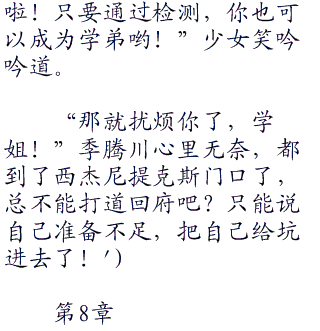 啦！只要通过检测，你也可
以成为学弟哟！”少女笑吟
吟道。
“那就扰烦你了，学
姐！”季腾川心里无奈，都
到了西杰尼提克斯门口了，
总不能打道回府吧？只能说
自己准备不足，把自己给坑
进去了！')
第8章